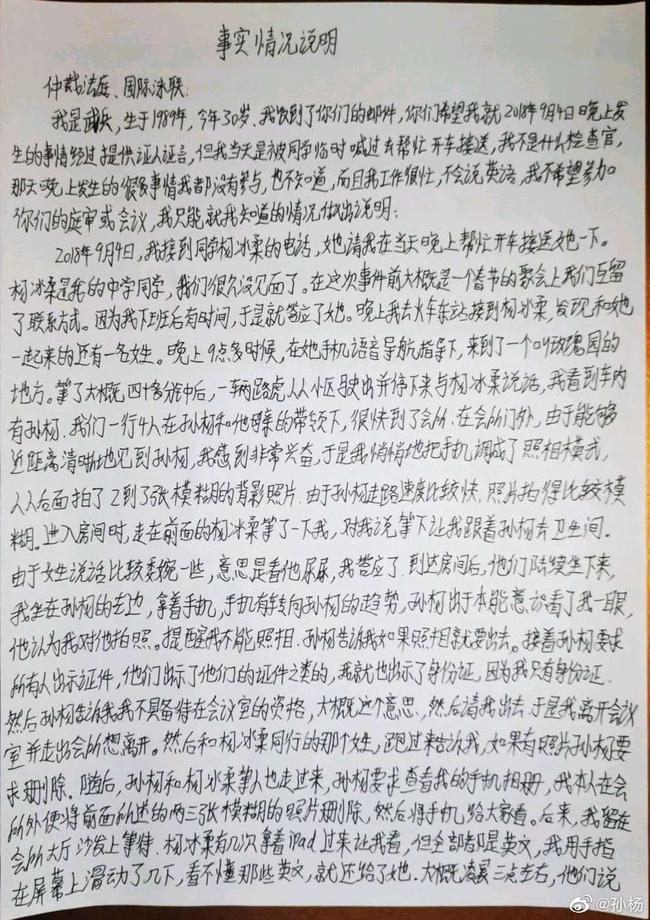 事实情况说明
仲裁法庭、国际泳联:
我是 ，生于1989年，今年30岁、我收到了你们的邮件，你们希望我就2018年9月4日晚上发
生的事情经过提供证人证言，但我当天是被同学临时喊过去帮忙开车接送，我不是什么检查官，
那天晚上发生的很多事情我都没有参与，也不知道，而且我工作很忙，不会说英语，我不希望参加
你们的庭审或会议，我只能就我知道的情况做出说明：
2018年9月4日，我接到同学杨冰柔的电话，她请我在当天晚上帮忙开车接送她一下。
杨冰柔是我的中学同学，我们很久没见面了。在这次事件前大概是一个春节的聚会上我们互留
了联系方式。因为我下班后有时间，于是就答应了她。晚上我去火车东站接到杨冰柔，发现和她
一起来的还有一名女生。晚上9点多时候，在她手机语音导航指导下，来到了一个叫玫瑰园的
地方。等了大概四十多分钟后，一辆路虎从小区驶出并停下来与杨冰柔说话，我看到车内
有孙杨。我们一行4人在孙杨和他母亲的带领下，很快到了会所。在会所门外，由于能够
近距离清晰地见到孙杨，我感到非常兴奋，于是我悄悄地把手机调成了照相模式，
从后面拍了2到了3张模糊的背影照片。由于孙杨走路速度比较快，照片拍得比较模
糊。进入房间时，走在前面的杨冰柔等了一下我，对我说等下让我跟着孙杨去卫生间。
由于女生说话比较委婉一些，意思是看他尿尿，我答应了。到达房间后，他们陆续坐下来，
我坐在孙杨的左边，拿着手机，手机有转向孙杨的趋势，孙杨出于本能意识看了我一眼，
他认为我对他拍照。提醒我不能照相。孙杨告诉我如果照相就要出去。接着孙杨要求
所有人出示证件，他们出示了他们的证件之类的，我就也出示了身份证，因为我只有身份证。
然后孙杨告诉我我不具备待在会议室的资格，大概这个意思，然后请我出去。于是我离开会议
室并走出会所想离开。然后和杨冰柔同行的那个女生，跑过来告诉我，如果有照片孙杨要
求删除。随后，孙杨和杨冰柔等人也走过来，孙杨要求查看我的手机相册，我本人在会
所外便将前面所述的两三张模糊的照片删除，然后将手机给大家看。后来，我留在
会所大厅沙发上等待。杨冰柔有几次拿着iPad过来让我看，但全部都是英文，我用手指
在屏幕上滑动了几下，看不懂那些英文，就还给了她。大概凌晨三点左右，他们说
@孙杨